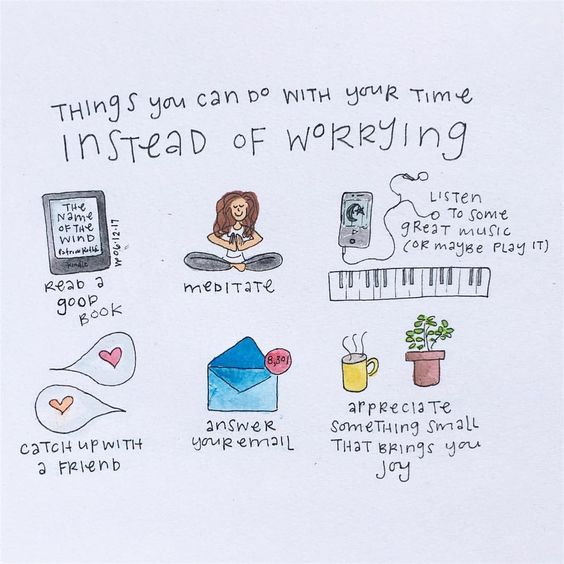 THINGS YOU CAN DO WITH YOUR TIME
INSTEAD OF WORRYING
THE
NAME
OF THE
WIND
Patrick Rothfuss
kindle
06·12·17
READ A
GOOD
BOOK
MEDITATE
LISTEN
TO SOME
GREAT MUSIC
(OR MAYBE PLAY IT)
CATCH UP WITH
A FRIEND
8,301
ANSWER
YOUR EMAIL
APPRECIATE
SOMETHING SMALL
THAT BRINGS YOU
JOY